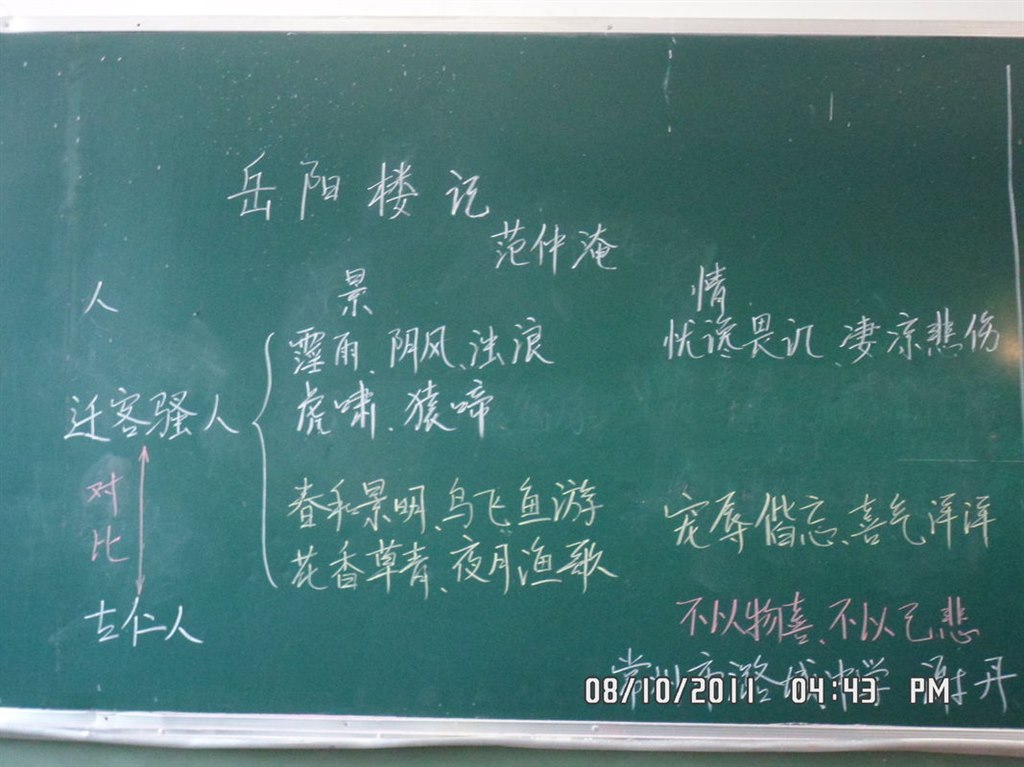 岳阳楼记
范仲淹
人 景 情
霪雨、阴风、浊浪 忧谗畏讥、凄凉悲伤
迁客骚人 虎啸、猿啼
对比
春和景明、鸟飞鱼游 宠辱偕忘、喜气洋洋
花香草青、夜月渔歌
古仁人 不以物喜、不以己悲
常州市潞城中学 丹
08/10/2011 04:43 PM